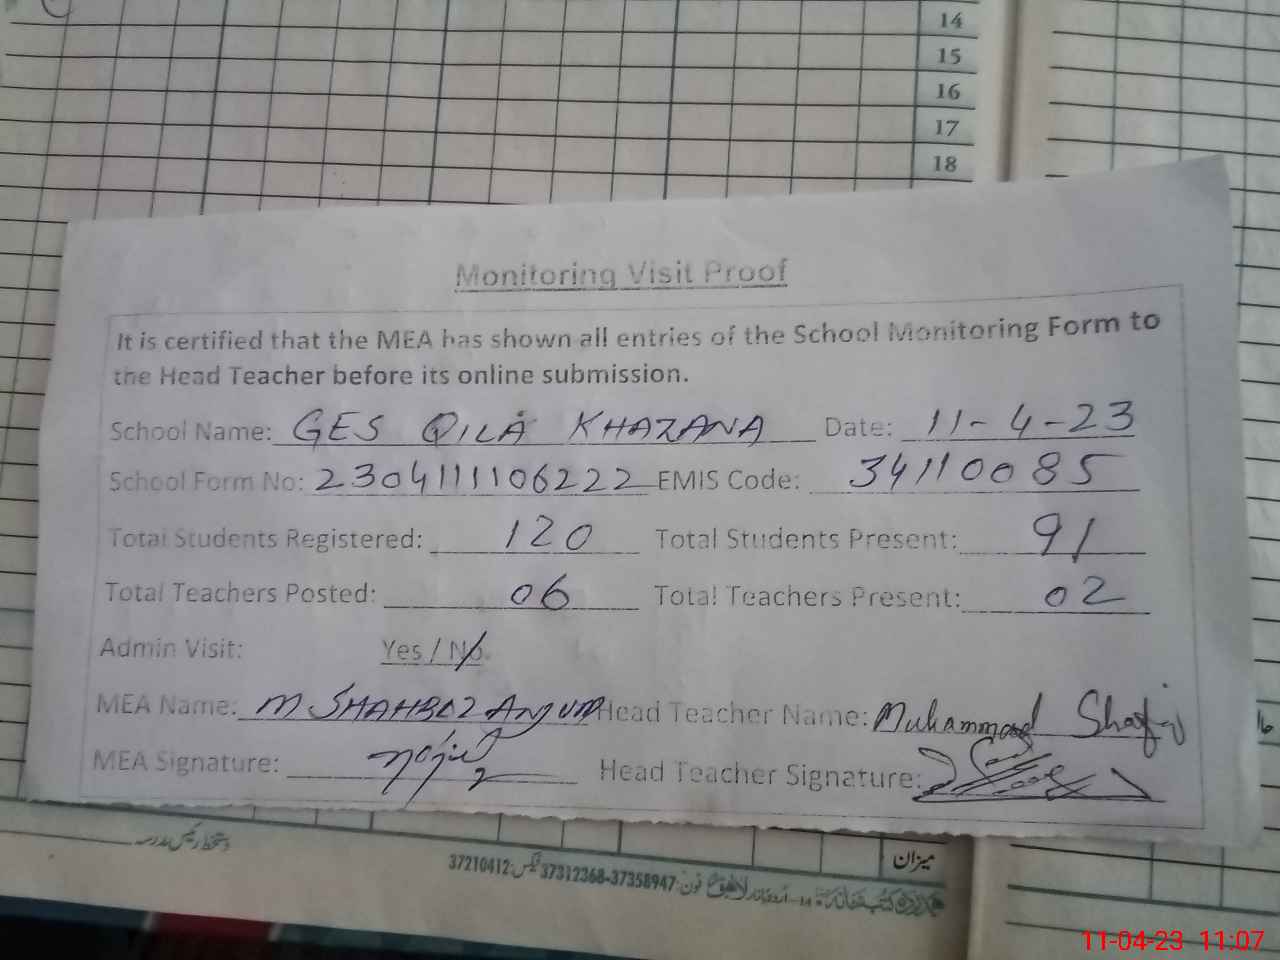 14
15
16
17
18
Monitoring Visit Proof
It is certified that the MEA has shown all entries of the School Monitoring Form to
the Head Teacher before its online submission.
School Name: GES QILA KHAZANA Date: 11-4-23
School Form No: 2304111106222 EMIS Code: 34110085
Total Students Registered: 120 Total Students Present: 91
Total Teachers Posted: 06 Total Teachers Present: 02
Admin Visit: Yes / No.
MEA Name: M SHAHBAZ ANJUM Head Teacher Name: Muhammad Shafi
MEA Signature: Head Teacher Signature:
16
میزان
فون: 37358947-37312368 فیکس: 37210412
11-04-23 11:07